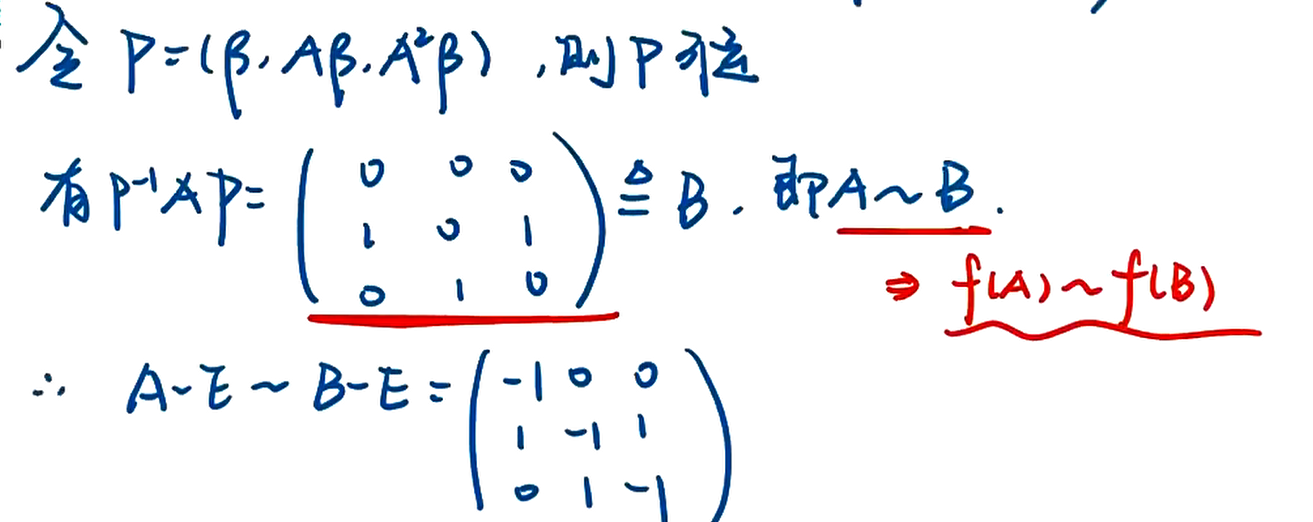 令 P=(β, Aβ, A²β) ,则 P 可逆
有 P⁻¹AP= ( 0 0 0
1 0 1
0 1 0 ) ≜ B . 即 A~B .
⇒ f(A)~f(B)
∴ A-E ~ B-E = ( -1 0 0
1 -1 1
0 1 -1 )